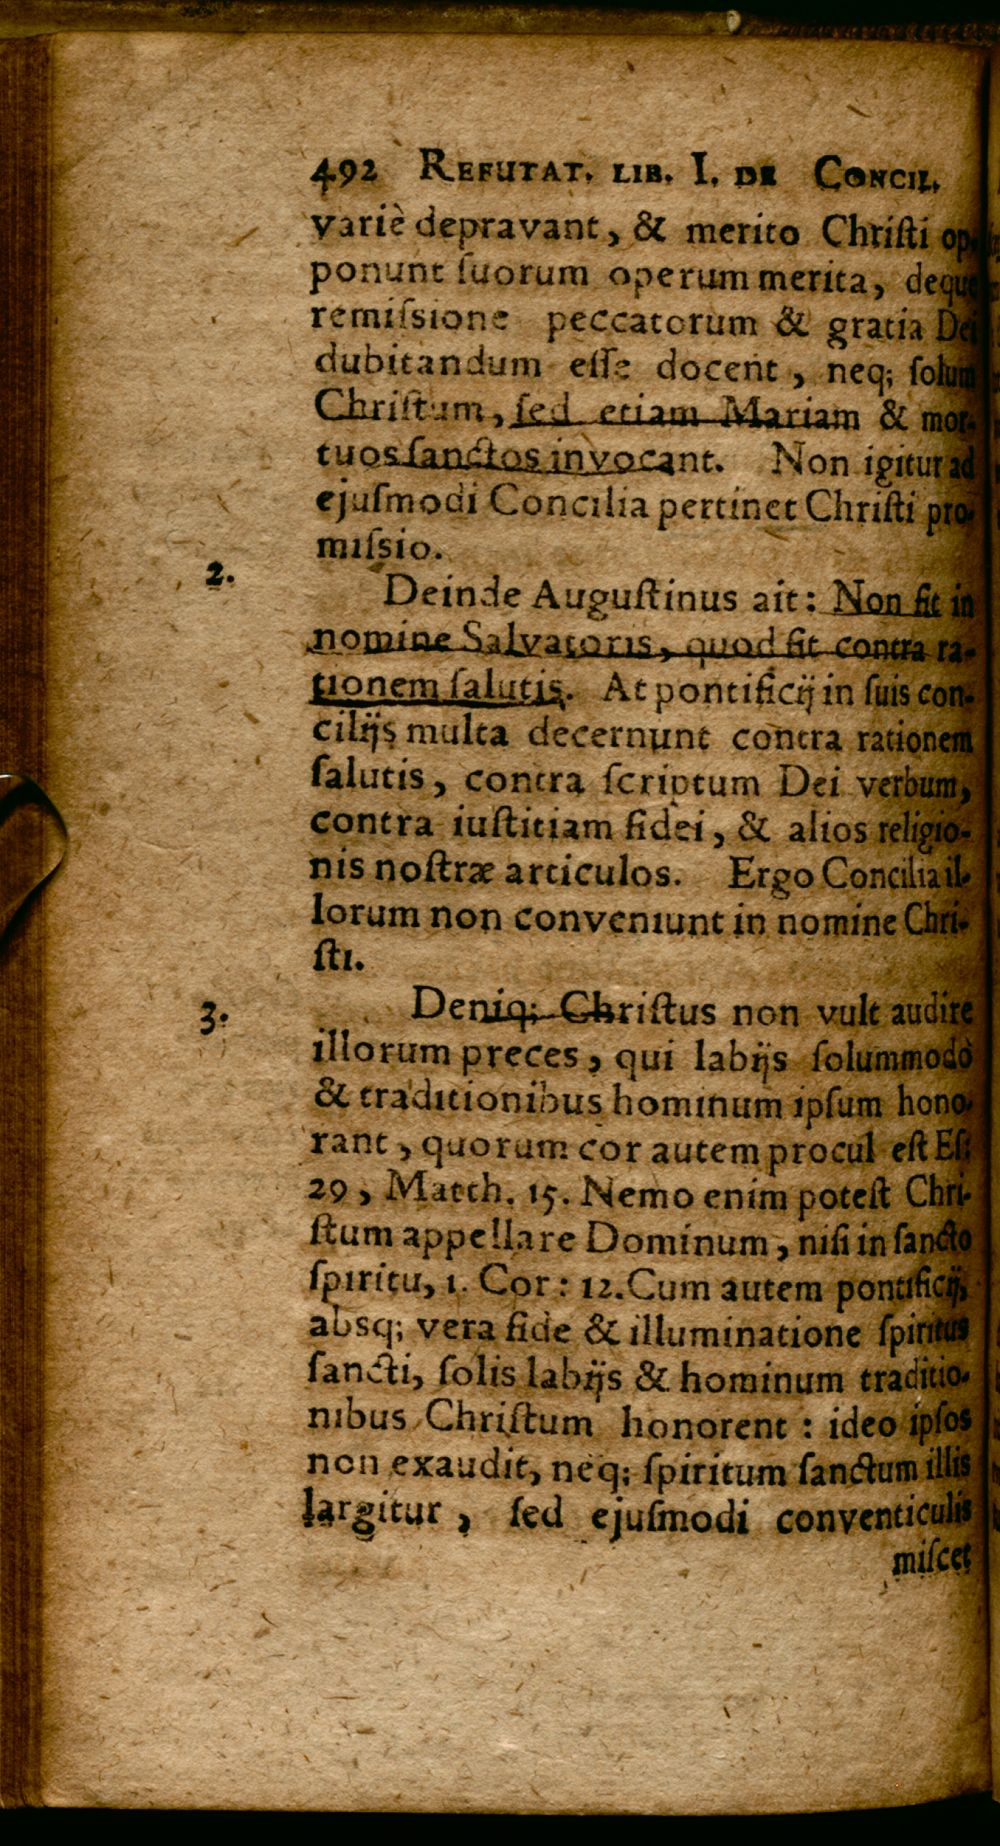 492 REFUTAT. LIB. I. DE CONCIL.
variè depravant, & merito Chriſti op-
ponunt ſuorum operum merita, deque
remiſsione peccatorum & gratia Dei
dubitandum eſſe docent, neq; ſolum
Chriſtum, ſed etiam Mariam & mor-
tuos ſanctos invocant. Non igitur ad
ejuſmodi Concilia pertinet Chriſti pro-
miſsio.
2.
Deinde Auguſtinus ait: Non fit in
nomine Salvatoris, quod fit contra ra-
tionem ſalutis. At pontificij in ſuis con-
cilijs multa decernunt contra rationem
ſalutis, contra ſcriptum Dei verbum,
contra iuſtitiam fidei, & alios religio-
nis noſtræ articulos. Ergo Concilia il-
lorum non conveniunt in nomine Chri-
ſti.
3.
Deniq; Chriſtus non vult audire
illorum preces, qui labijs ſolummodò
& traditionibus hominum ipſum hono-
rant, quorum cor autem procul eſt Eſ:
29, Matth. 15. Nemo enim poteſt Chri-
ſtum appellare Dominum, niſi in ſancto
ſpiritu, 1. Cor: 12. Cum autem pontificij,
absq; vera fide & illuminatione ſpiritus
ſancti, ſolis labijs & hominum traditio-
nibus Chriſtum honorent: ideo ipſos
non exaudit, neq; ſpiritum ſanctum illis
largitur, ſed ejuſmodi conventiculis
miſcet